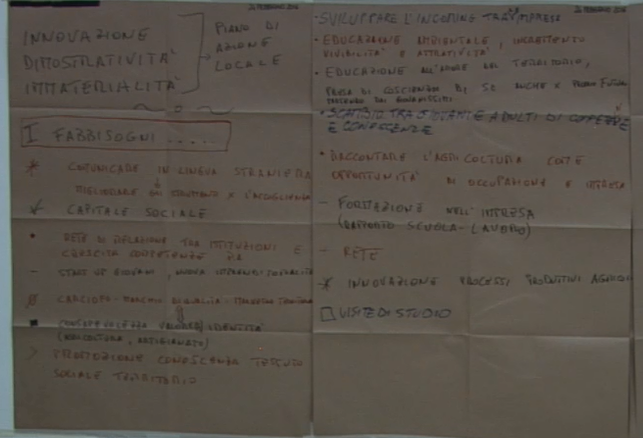 INNOVAZIONE
DIMOSTRATIVITA'
IMMATERIALITA'
PIANO DI
AZIONE
LOCALE
I FABBISOGNI ....
* COMUNICARE IN LINGUA STRANIERA
MIGLIORARE STRUMENTO X L'ACCOGLIENZA
CAPITALE SOCIALE
• RETE DI RELAZIONE TRA ISTITUZIONI E
CAPACITÀ COMPETENZE PA
- START UP GIOVANI, NUOVA IMPRENDITORIALITÀ
CARCIOFO - MARCHIO DI QUALITÀ -
CONSAPEVOLEZZA VALORE/IDENTITA'
(AGRICOLTURA, ARTIGIANATO)
> PROMOZIONE CONOSCENZA TESSUTO
SOCIALE TERRITORIO
- SVILUPPARE L'INCOMING TRA IMPRESE
• EDUCAZIONE AMBIENTALE, INCREMENTO
VIVIBILITA' E ATTRATTIVITA'
• EDUCAZIONE ALL'AMORE DEL TERRITORIO,
PRESA DI COSCIENZA DI SE ANCHE X
• SCAMBIO TRA GIOVANI E ADULTI DI COMPETENZE
E CONOSCENZE
• RACCONTARE L'AGRICOLTURA COME
OPPORTUNITA' DI OCCUPAZIONE E IMPRESA
- FORMAZIONE NELL'IMPRESA
(RAPPORTO SCUOLA-LAVORO)
- RETE
-* INNOVAZIONE PROCESSI PRODUTTIVI AGRICOLI
□ VISITE DI STUDIO